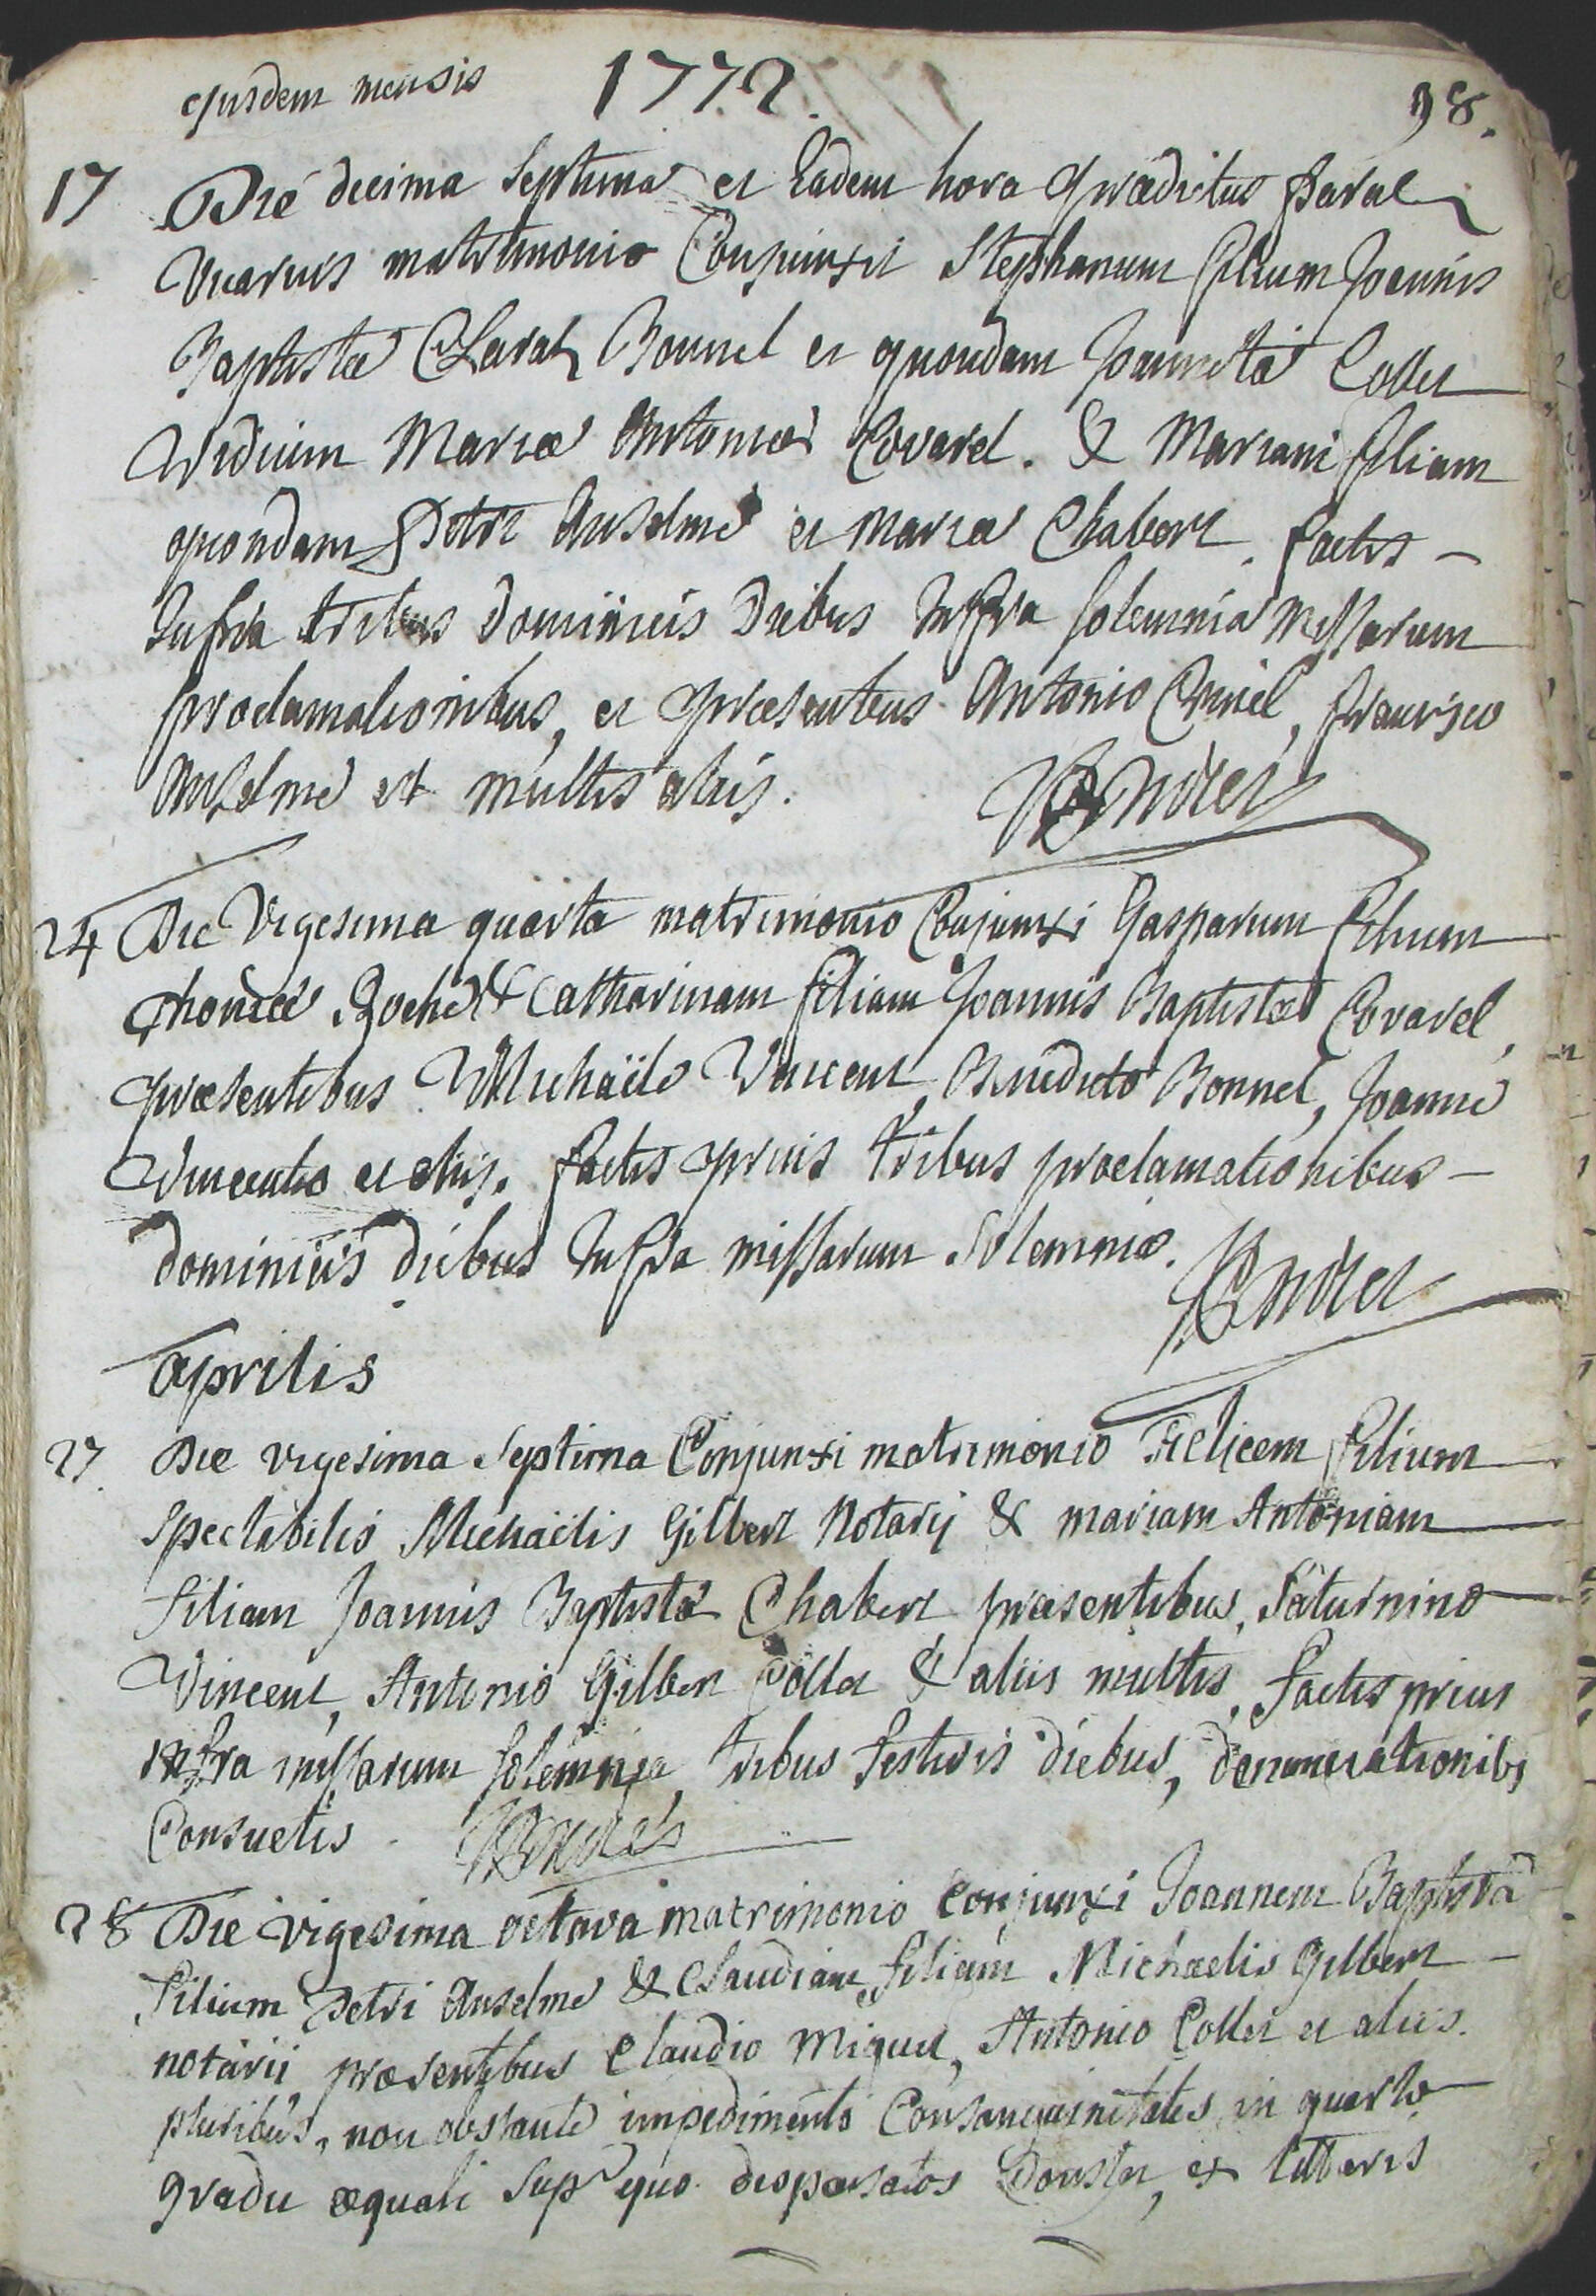 ejusdem mensis 1772. 98.
17 Die decima septima et Eadem hora prædictus
Vicarius matrimonio Conjunxit Stephanum filium Joannis
Baptistæ Claral Bonnel et quondam Joannetæ Collet
Viduum Mariæ Antoniæ Covarel. & Mariam filiam
quondam Petri Anselme et Mariæ Chabert. factis
Infra tribus dominicis Diebus Infra solemnia Missarum
proclamationibus, et præsentibus Antonio, francisco
Anselme et multis aliis.
24 Die Vigesima quarta matrimonio Conjunxi Gasparum filium
& Catharinam filiam Joannis Baptistæ Covarel,
præsentibus Michaële Vincent, Benedicto Bonnel, Joanne
Vincentio et aliis. factis prius tribus proclamationibus
dominicis diebus Infra missarum Solemnia.
aprilis
27 Die vigesima septima Conjunxi matrimonio Felicem filium
Spectabilis Michaëlis Gilbert Notarij & mariam Antoniam
filiam Joannis Baptistæ Chabert præsentibus, Saturnino
Vincent, Antonio Gilbert Collet & aliis multis, factis prius
infra missarum solemnia, tribus festivis diebus, denunciationibs
Consuetis.
28 Die vigesima octava matrimonio conjunxi Joannem Baptistā
filium Petri Anselme & Claudiam filiam Michaelis Gilbert
notarii præsentibus Claudio Miquel, Antonio Collet et aliis
pluribus, non obstante impedimento Consanguinitatis in quarto
gradu æquali supr quo dispensatos Constat, ex litteris